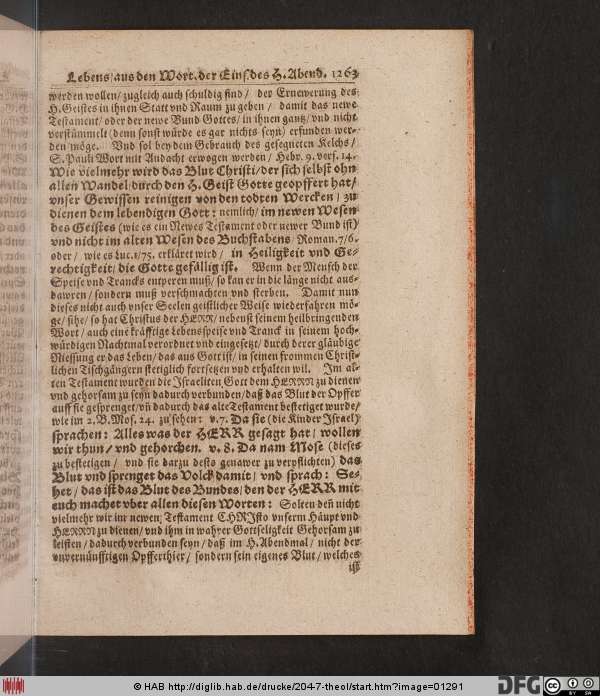 Lebens/aus den Wort. der Eins. des H. Abend. 1263
werden wollen/ zugleich auch schuldig sind/ der Ernewerung des
H. Geistes in ihnen Statt vnd Raum zu geben/ damit das newe
Testament/ oder der newe Bund Gottes/ in ihnen gantz/ vnd nicht
verstümmelt (denn sonst würde es gar nichts seyn) erfunden wer-
den möge. Vnd sol bey dem Gebrauch des gesegneten Kelchs/
S. Pauli Wort mit Andacht erwogen werden/ Hebr. 9. vers. 14.
Wie vielmehr wird das Blut Christi/ der sich selbst ohn
allen Wandel/ durch den H. Geist Gotte geopffert hat/
vnser Gewissen reinigen von den todten Wercken/ zu
dienen dem lebendigen Gott: nemlich/ im newen Wesen
des Geistes (wie es ein Newes Testament oder newer Bund ist)
vnd nicht im alten Wesen des Buchstabens Roman. 7/6.
oder/ wie es Luc. 1/75. erkläret wird/ in Heiligkeit vnd Ge-
rechtigkeit/ die Gotte gefällig ist. Wenn der Mensch der
Speise vnd Trancks entperen muß/ so kan er in die länge nicht aus-
dawren/ sondern muß verschmachten vnd sterben. Damit nun
dieses nicht auch vnser Seelen geistlicher Weise wiederfahren mö-
ge/ sihe/ so hat Christus der HERR/ nebenst seinem heilbringenden
Wort/ auch eine kräfftige Lebensspeise vnd Tranck in seinem hoch-
würdigen Nachtmal verordnet vnd eingesetzt/ durch derer gläubige
Niessung er das Leben/ das aus Gott ist/ in seinen frommen Christ-
lichen Tischgängern stetiglich fortsetzen vnd erhalten wil. Im al-
ten Testament wurden die Israeliten Gott dem HERRN zu dienen
vnd gehorsam zu seyn dadurch verbunden/ daß das Blut der Opffer
auff sie gesprenget/ vñ dadurch das alte Testament bestetiget wurde/
wie im 2. B. Mos. 24. zu sehen: v. 7. Da sie (die Kinder Israel)
sprachen: Alles was der HERR gesagt hat/ wollen
wir thun/ vnd gehorchen. v. 8. Da nam Mose (dieses
zu bestetigen/ vnd sie darzu desto genawer zu verpflichten) das
Blut vnd sprenget das Volck damit/ vnd sprach: Se-
het/ das ist das Blut des Bundes/ den der HERR mit
euch machet vber allen diesen Worten: Solten deñ nicht
vielmehr wir im newen Testament CHRIsto vnserm Häupt vnd
HERRN zu dienen/ vnd ihm in wahrer Gottseligkeit Gehorsam zu
leisten/ dadurch verbunden seyn/ daß im H. Abendmal/ nicht der
vnvernünfftigen Opfferthier/ sondern sein eigenes Blut/ welches
ist
© HAB http://diglib.hab.de/drucke/204-7-theol/start.htm?image=01291
DFG
cc BY SA